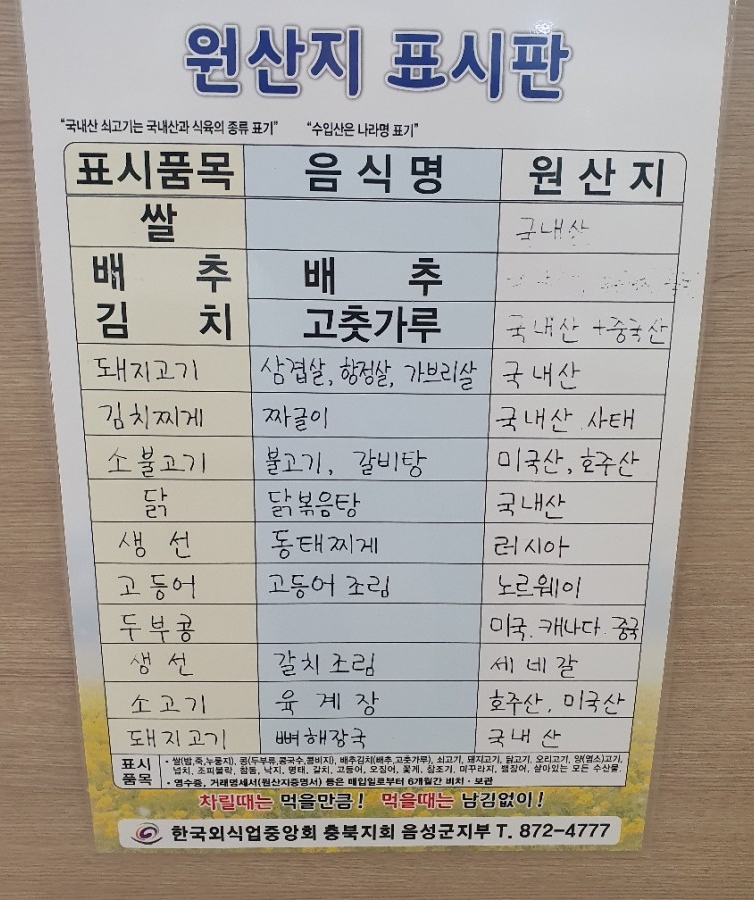 원산지 표시판
"국내산 쇠고기는 국내산과 식육의 종류 표기" "수입산은 나라명 표기"
표시품목 음식명 원산지
쌀 국내산
배추 배추
김치 고춧가루 국내산 +중국산
돼지고기 삼겹살, 항정살, 가브리살 국내산
김치찌게 짜글이 국내산 사태
소불고기 불고기, 갈비탕 미국산, 호주산
닭 닭볶음탕 국내산
생선 동태찌게 러시아
고등어 고등어조림 노르웨이
두부콩 미국. 캐나다. 중국
생선 갈치조림 세네갈
소고기 육계장 호주산, 미국산
돼지고기 뼈해장국 국내산
표시 품목
• 쌀(밥,죽,누룽지), 콩(두부류,콩국수,콩비지), 배추김치(배추,고춧가루), 쇠고기, 돼지고기, 닭고기, 오리고기, 양(염소)고기,
넙치, 조피볼락, 참돔, 낙지, 명태, 갈치, 고등어, 오징어, 꽃게, 참조기, 미꾸라지, 뱀장어, 살아있는 모든 수산물.
• 영수증, 거래명세서(원산지증명서) 등은 매입일로부터 6개월간 비치 · 보관
차릴때는 먹을만큼! 먹을때는 남김없이!
한국외식업중앙회 충북지회 음성군지부 T. 872-4777